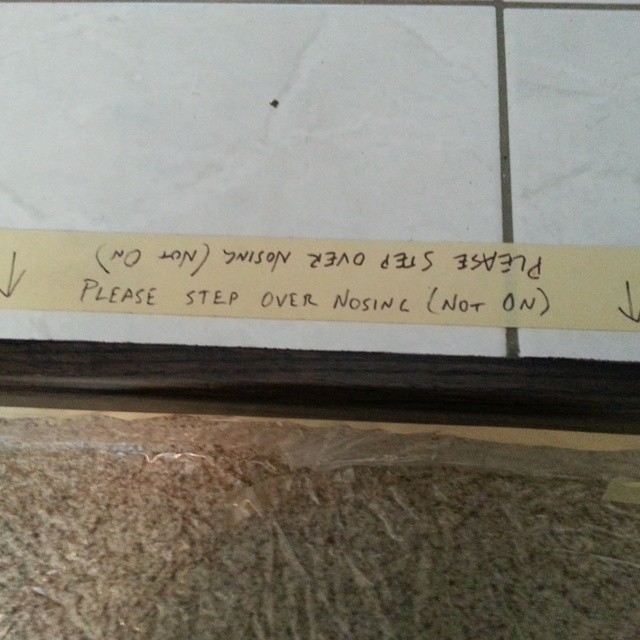 PLEASE STEP OVER NOSING (NOT ON)
PLEASE STEP OVER NOSING (NOT ON)